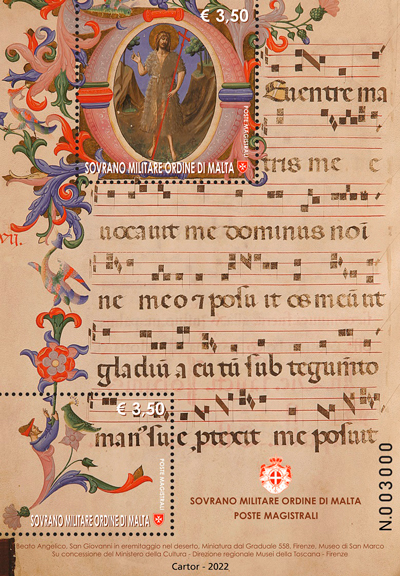 € 3,50
POSTE MAGISTRALI
SOVRANO MILITARE ORDINE DI MALTA
Euentre ma
tris me e
vii.
uocauit me dominus noi
ne meo & posuit os meũ ut
gladiũ a cu tũ sub tegumto
€ 3,50
man' su e ptexit me posuit
POSTE MAGISTRALI
SOVRANO MILITARE ORDINE DI MALTA
SOVRANO MILITARE ORDINE DI MALTA
POSTE MAGISTRALI
N.003000
Beato Angelico, San Giovanni in eremitaggio nel deserto, Miniatura dal Graduale 558, Firenze, Museo di San Marco
Su concessione del Ministero della Cultura - Direzione regionale Musei della Toscana - Firenze
Cartor - 2022